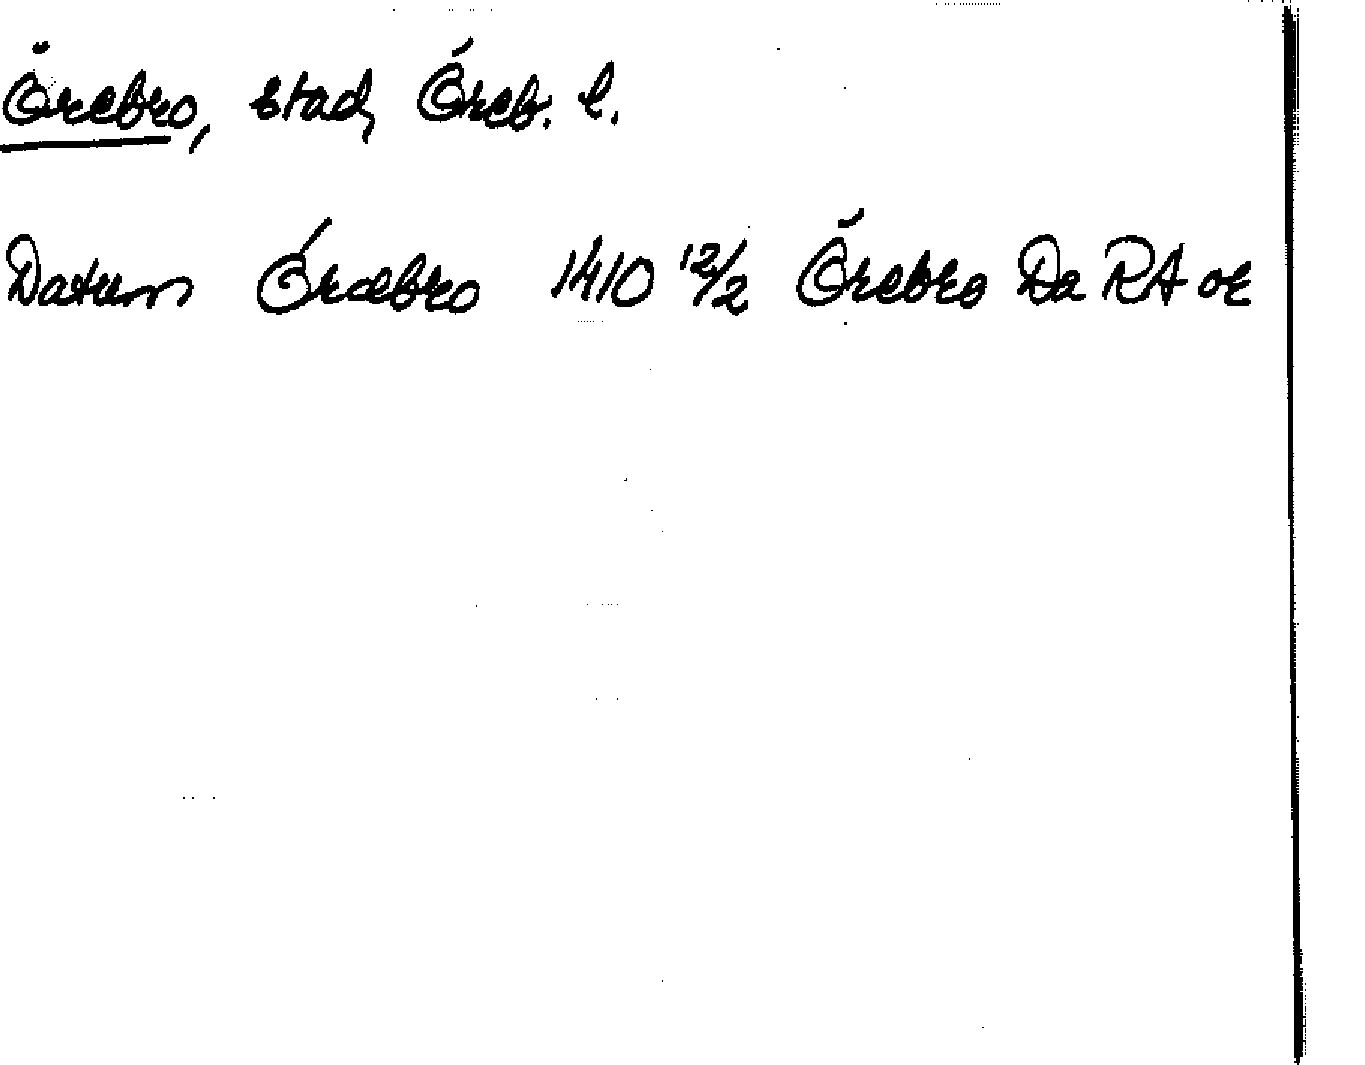 Örebro, stad, Öreb. l.
Datum Öræbro 1410 12/2 Örebro Da RA or